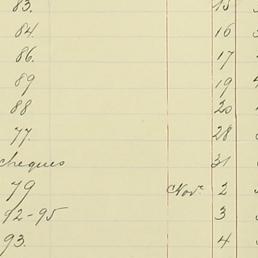 83. 15
84. 16
86. 17
89 19
88 20
77. 28
cheques 31
79 Novr 2
92-95 3
93. 4